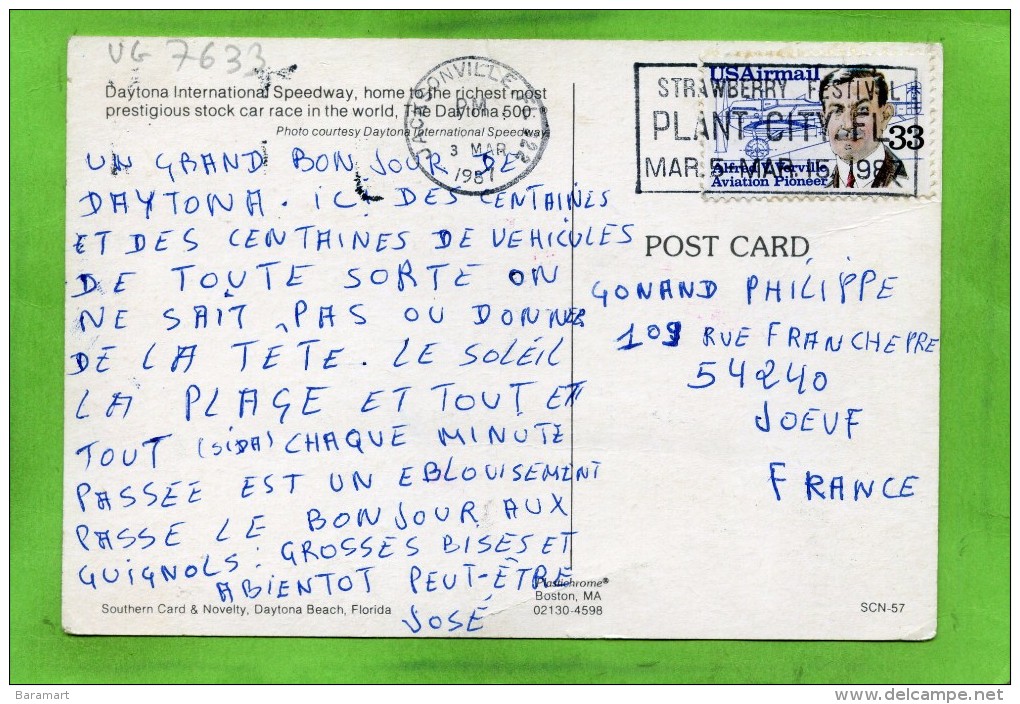 VG 7633
Daytona International Speedway, home to the richest most
prestigious stock car race in the world, The Daytona 500
Photo courtesy Daytona International Speedway
JACKSONVILLE FL 322
PM
3 MAR
1987
STRAWBERRY FESTIVAL
PLANT CITY FL
MAR. 5-MAR. 15, 1987
USAirmail
33
Alfred V. Verville
Aviation Pioneer
UN GRAND BONJOUR DE
DAYTONA. ICI DES CENTAINES
ET DES CENTAINES DE VEHICULES
DE TOUTE SORTE ON
NE SAIT PAS OU DONNER
DE LA TETE. LE SOLEIL
LA PLAGE ET TOUT ET
TOUT (SIDA) CHAQUE MINUTE
PASSEE EST UN EBLOUISEMENT
PASSE LE BONJOUR AUX
GUIGNOLS. GROSSES BISES ET
ABIENTOT PEUT-ÊTRE
JOSÉ
POST CARD
GONAND PHILIPPE
109 RUE FRANCHEPRE
54240
JOEUF
FRANCE
Southern Card & Novelty, Daytona Beach, Florida
Plastichrome®
Boston, MA
02130-4598
SCN-57
Baramart
www.delcampe.net